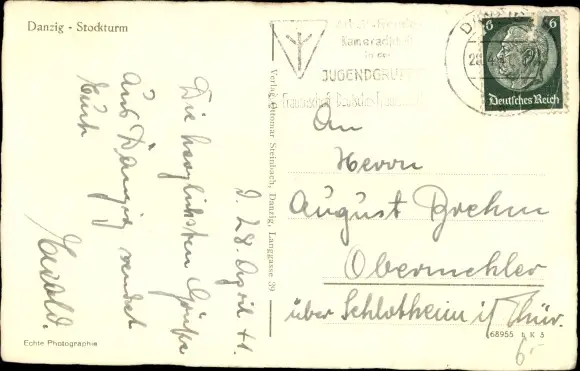 Danzig - Stockturm
D. 28. April 41.
Die herzlichsten Grüße
aus Danzig sendet
Euch
Ewald.
Echte Photographie
Verlag Ottomar Steinbach, Danzig, Langgasse 39
Kameradschaft
in der
JUGENDGRUPPE
6 6
Deutsches Reich
An
Herrn
August Brehm
Obermehler
über Schlotheim i/ Thür.
68955 b K 5
6.-